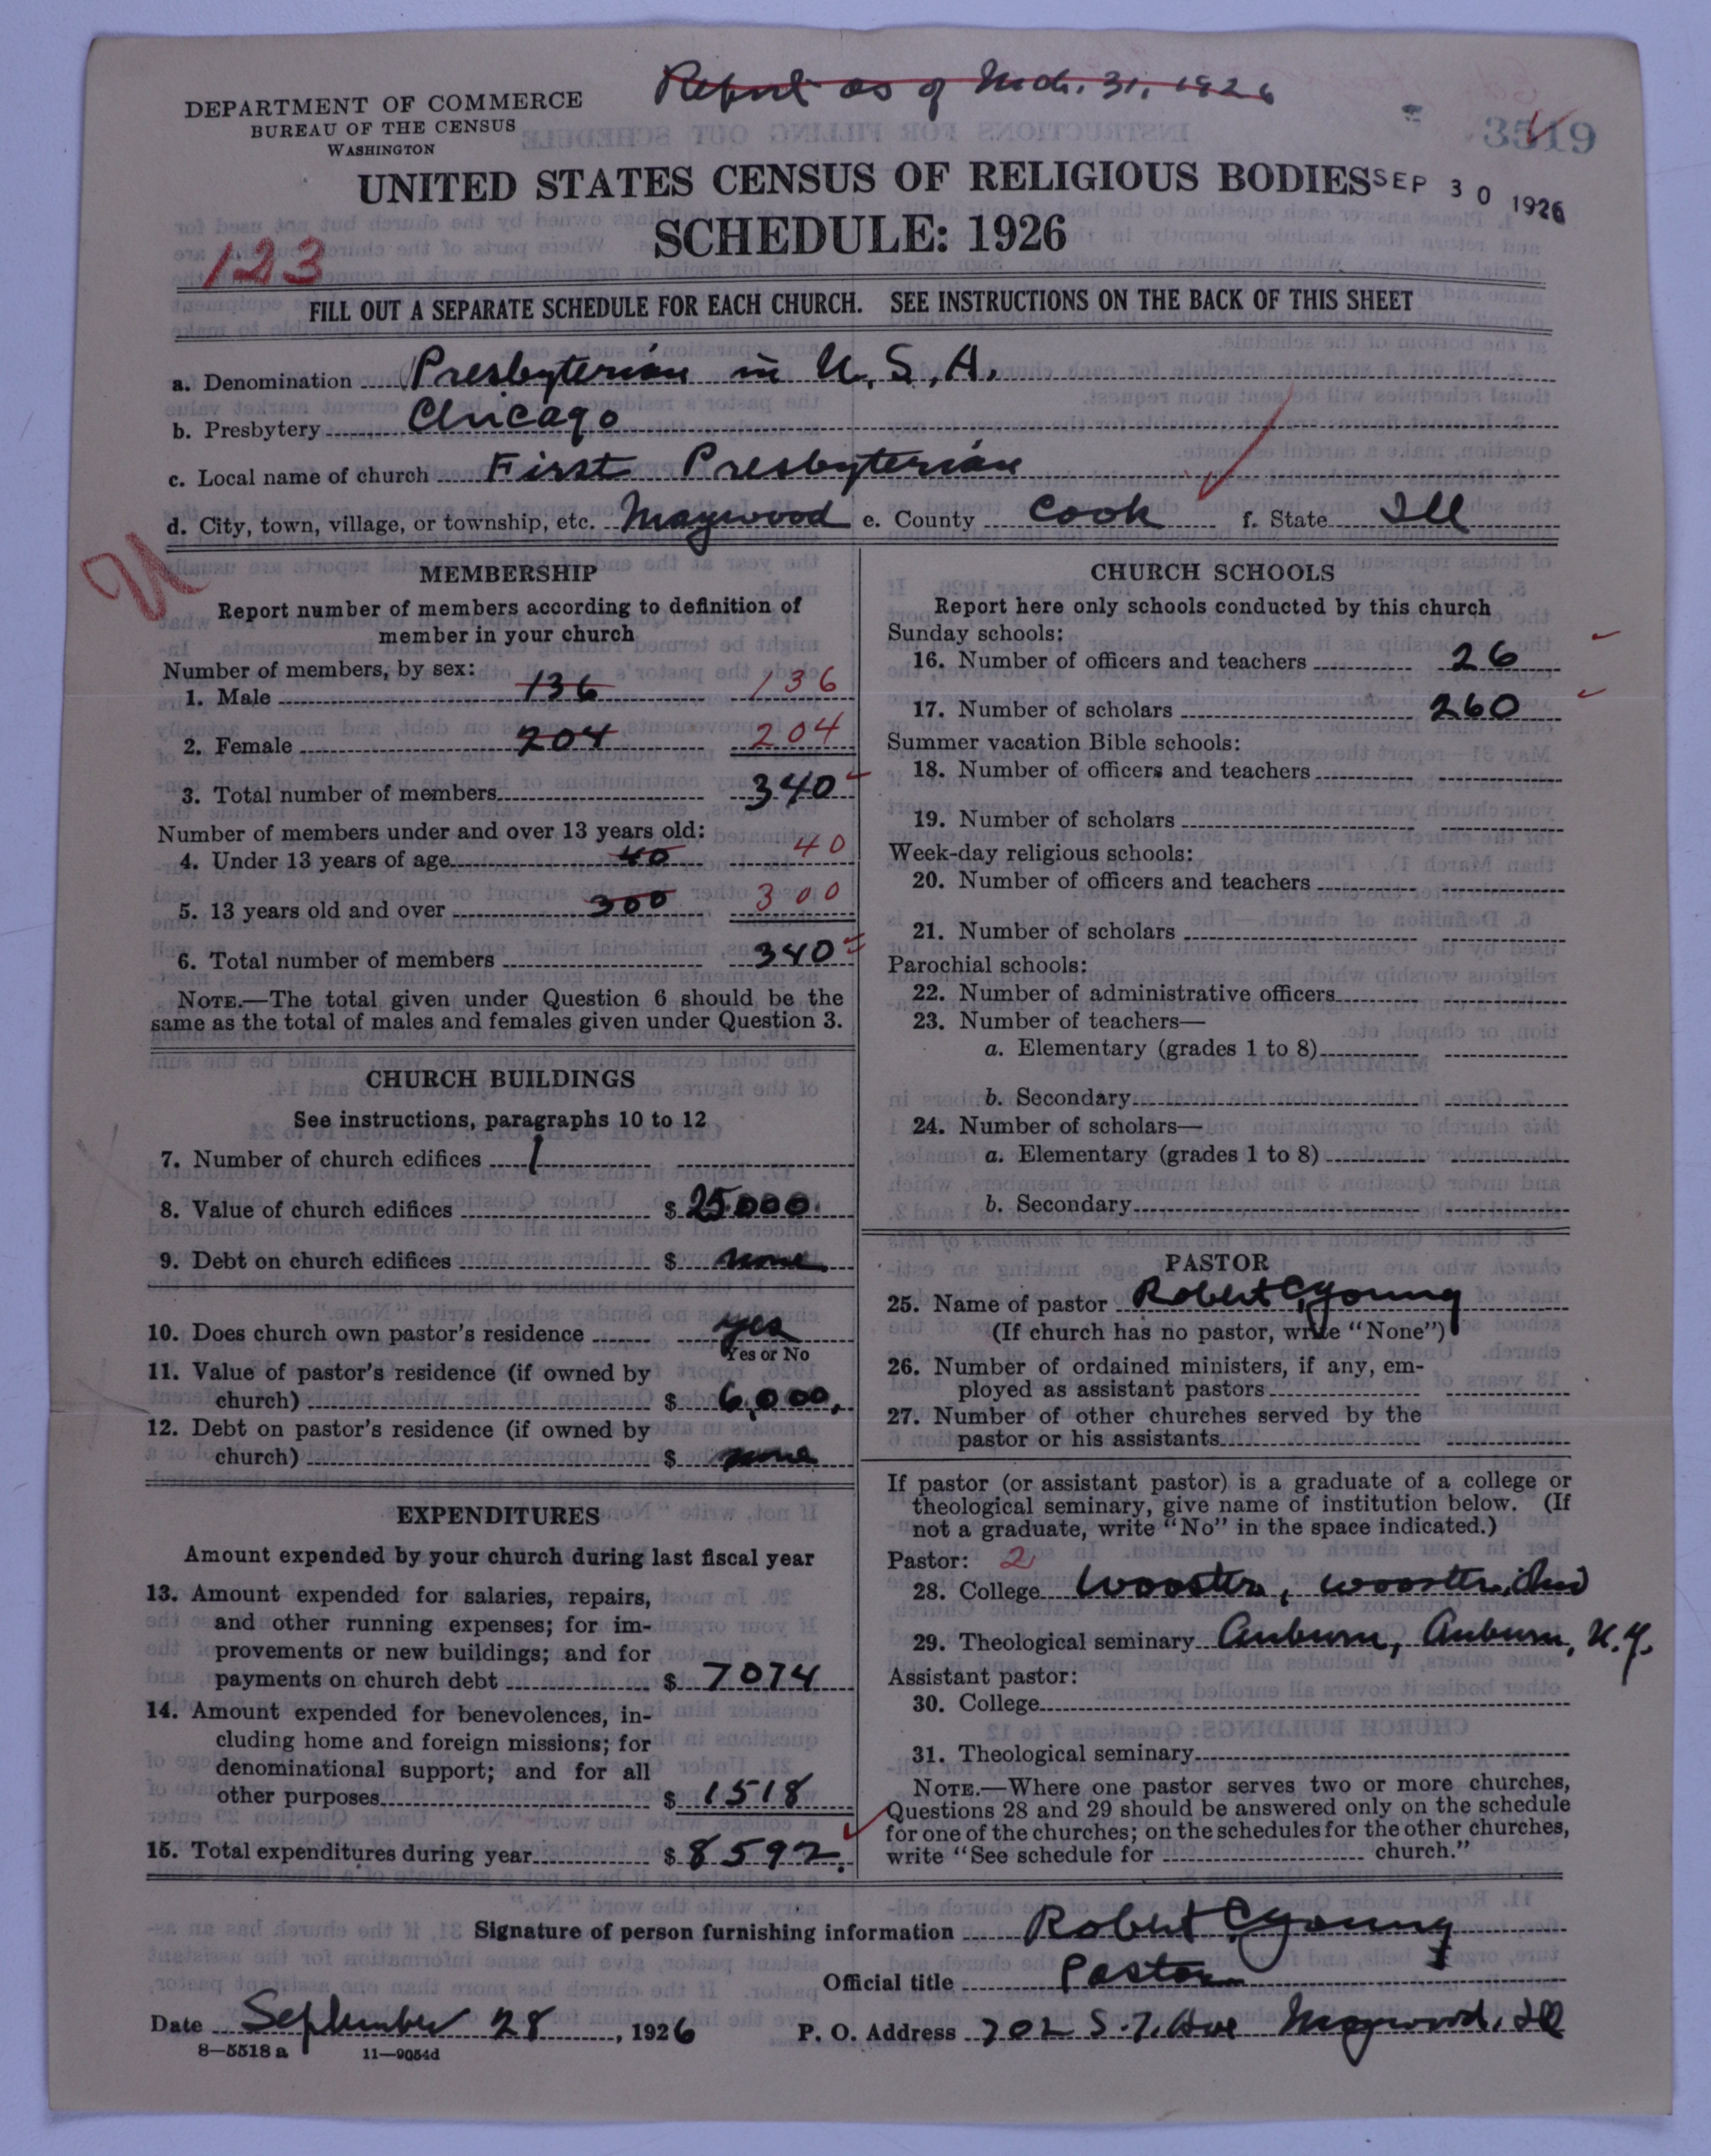 Report as of Mch. 31, 1926
DEPARTMENT OF COMMERCE
BUREAU OF THE CENSUS
WASHINGTON
3519
UNITED STATES CENSUS OF RELIGIOUS BODIES
SEP 30 1926
SCHEDULE: 1926
123
FILL OUT A SEPARATE SCHEDULE FOR EACH CHURCH. SEE INSTRUCTIONS ON THE BACK OF THIS SHEET
a. Denomination Presbyterian in U.S.A.
b. Presbytery Chicago
c. Local name of church First Presbyterian
d. City, town, village, or township, etc. Maywood e. County Cook f. State Ill
U
MEMBERSHIP
Report number of members according to definition of
member in your church
Number of members, by sex:
1. Male 136 136
2. Female 204 204
3. Total number of members 340
Number of members under and over 13 years old:
4. Under 13 years of age 40 40
5. 13 years old and over 300 300
6. Total number of members 340
NOTE.—The total given under Question 6 should be the
same as the total of males and females given under Question 3.
CHURCH BUILDINGS
See instructions, paragraphs 10 to 12
7. Number of church edifices 1
8. Value of church edifices $ 25000.
9. Debt on church edifices $ none
10. Does church own pastor's residence yes
Yes or No
11. Value of pastor's residence (if owned by
church) $ 6,000.
12. Debt on pastor's residence (if owned by
church) $ none
EXPENDITURES
Amount expended by your church during last fiscal year
13. Amount expended for salaries, repairs,
and other running expenses; for im-
provements or new buildings; and for
payments on church debt $ 7074
14. Amount expended for benevolences, in-
cluding home and foreign missions; for
denominational support; and for all
other purposes $ 1518
15. Total expenditures during year $ 8592.
CHURCH SCHOOLS
Report here only schools conducted by this church
Sunday schools:
16. Number of officers and teachers 26
17. Number of scholars 260
Summer vacation Bible schools:
18. Number of officers and teachers
19. Number of scholars
Week-day religious schools:
20. Number of officers and teachers
21. Number of scholars
Parochial schools:
22. Number of administrative officers
23. Number of teachers—
a. Elementary (grades 1 to 8)
b. Secondary
24. Number of scholars—
a. Elementary (grades 1 to 8)
b. Secondary
PASTOR
25. Name of pastor Robert C. Young
(If church has no pastor, write "None")
26. Number of ordained ministers, if any, em-
ployed as assistant pastors
27. Number of other churches served by the
pastor or his assistants
If pastor (or assistant pastor) is a graduate of a college or
theological seminary, give name of institution below. (If
not a graduate, write "No" in the space indicated.)
Pastor: 2
28. College Wooster, Wooster,
29. Theological seminary Auburn, Auburn, N.Y.
Assistant pastor:
30. College
31. Theological seminary
NOTE.—Where one pastor serves two or more churches,
Questions 28 and 29 should be answered only on the schedule
for one of the churches; on the schedules for the other churches,
write "See schedule for church."
Signature of person furnishing information Robert C. Young
Official title Pastor
Date September 28, 1926 P. O. Address 702 S. 7. Ave Maywood, Ill
8—5518a 11—9054d